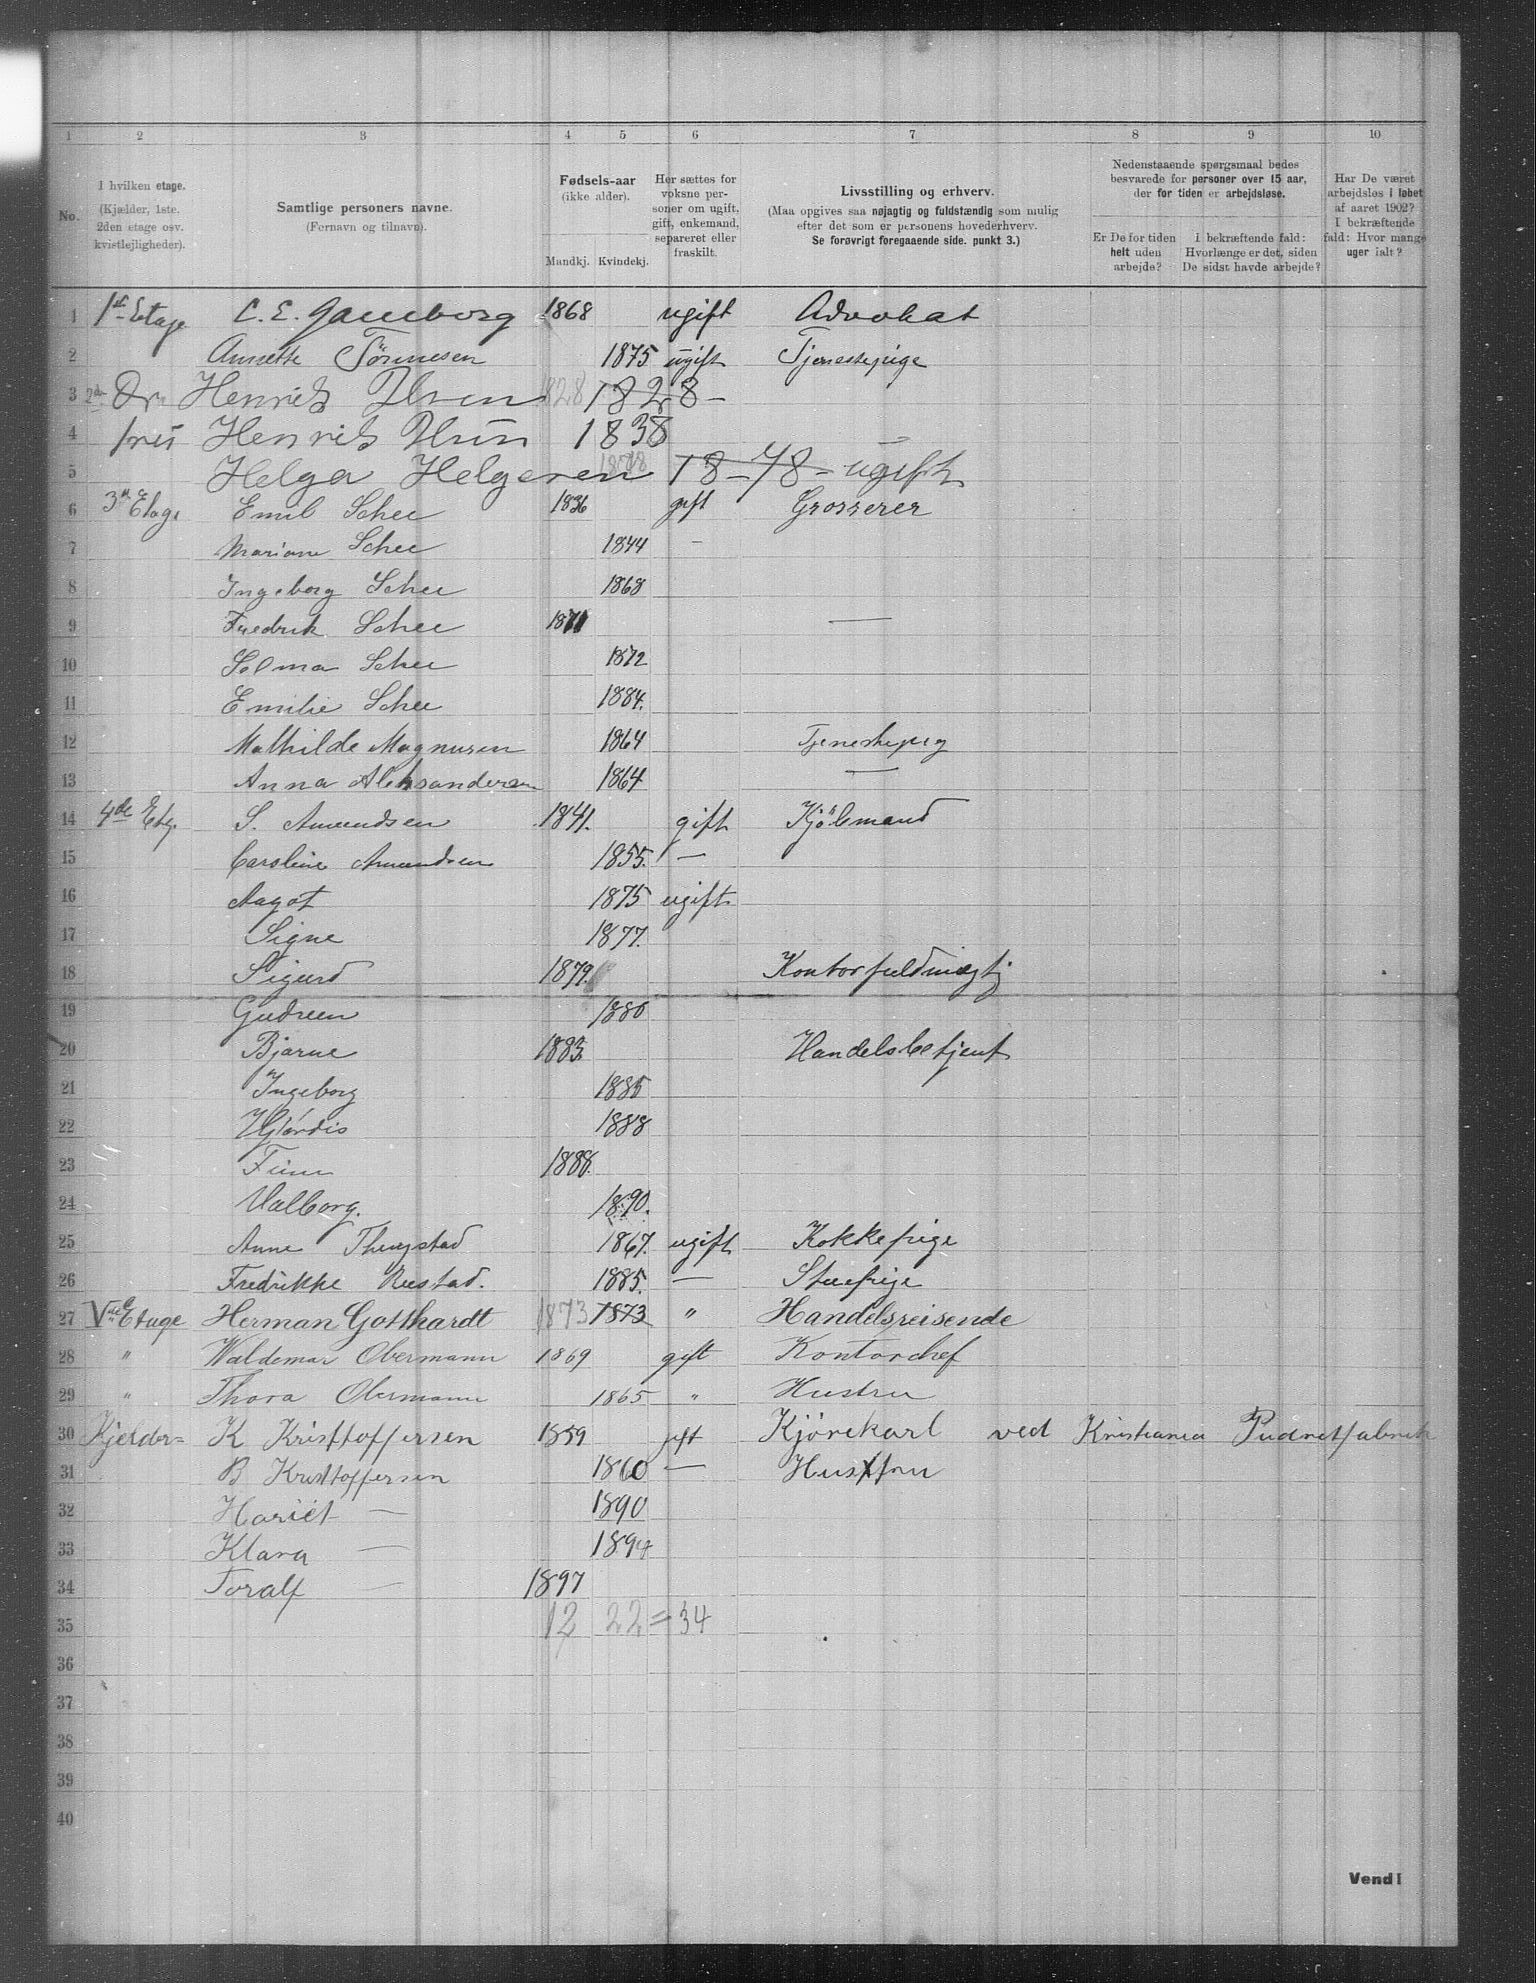 1 2 3 4 5 6 7 8 9 10
No.
I hvilken etage.
(Kjælder, 1ste.
2den etage osv.
kvistlejligheder).
Samtlige personers navne.
(Fornavn og tilnavn).
Fødsels-aar
(ikke alder).
Mandkj. Kvindekj.
Her sættes for
voksne per-
soner om ugift,
gift, enkemand,
separeret eller
fraskilt.
Livsstilling og erhverv.
(Maa opgives saa nøjagtig og fuldstændig som mulig
efter det som er personens hovederhverv.
Se forøvrigt foregaaende side. punkt 3.)
Nedenstaaende spørgsmaal bedes
besvarede for personer over 15 aar,
der for tiden er arbejdsløse.
Er De for tiden
helt uden
arbejde?
I bekræftende fald:
Hvorlænge er det, siden
De sidst havde arbejde?
Har De været
arbejdsløs i løbet
af aaret 1902?
I bekræftende
fald: Hvor mange
uger ialt?
1 1st Etage C. E. Gamborg 1868 ugift Advokat
2 Annette Tönnesen 1875 ugift Tjenestepige
3 Dr Henrik 1828 1828 -
4 Henrik 1838
5 Helga Helgesen 1878 18-78 - ugift
6 3die Etage Emil Schee 1836 gift Grosserer
7 Mariane Schee 1844 -
8 Ingeborg Schee 1868
9 Fredrik Schee 1871 —
10 Selma Schee 1872
11 Emilie Schee 1884.
12 Mathilde Magnusen 1864 Tjenestepig
13 Anna Aleksandersen 1864 —
14 4de Etg. S. Amundsen 1841. gift Kjöbmand
15 Caroline Amundsen 1855. —
16 Aagot 1875 ugift
17 Signe 1877.
18 Sigurd 1879. Kontorfuldmægtig
19 Gudrun 1880
20 Bjarne 1883. Handelsbetjent
21 Ingeborg 1885
22 Hjördis 1888
23 Finn 1888.
24 Valborg. 1890.
25 Anne Thingstad 1867. ugift Kokkepige
26 Fredrikke Rustad. 1885. — Stuepige
27 Vte Etage Herman Gotthardt 1873 1873 " Handelsreisende
28 " Waldemar Obermann 1869 gift Kontorchef
29 " Thora Obermann 1865 " Hustru
30 Kjelder= K Kristtoffersen 1859 gift Kjörekarl ved Kristiania Pudretfabrik
31 B Kristtoffersen 1860 — Hustru
32 Hariet — 1890
33 Klara — 1894
34 Toralf — 1897
35 12 22 = 34
36
37
38
39
40
Vend!